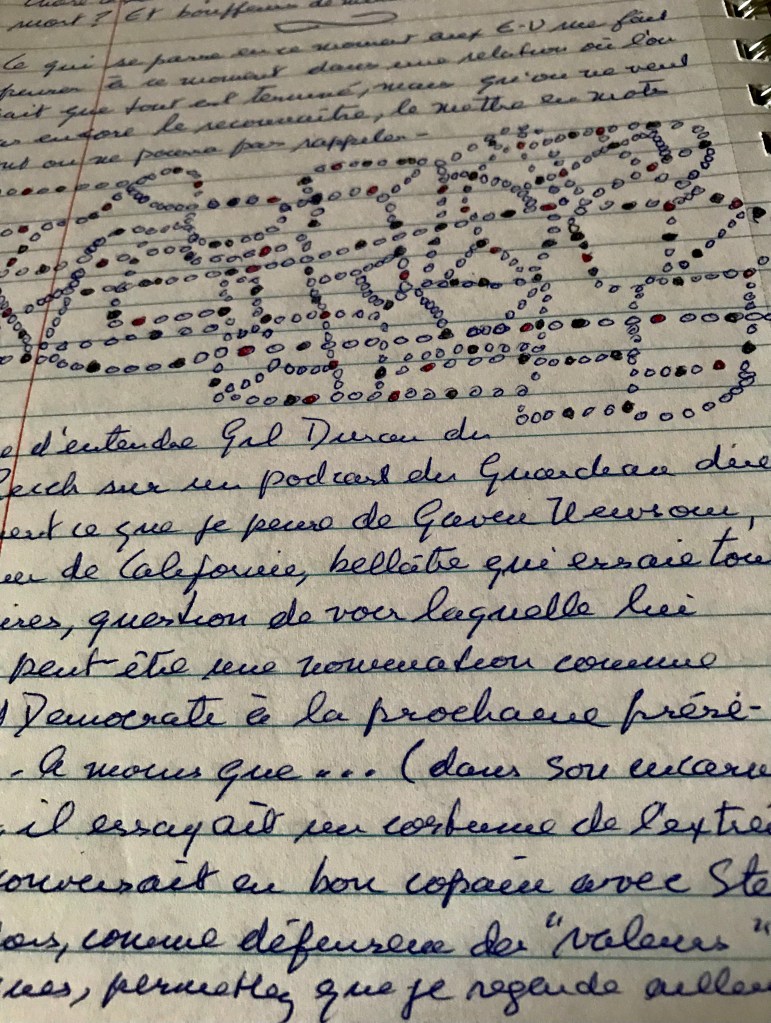 mort? Et bouffeurs de
Ce qui se passe en ce moment aux E-U me fait
penser à ce moment dans une relation où l'on
sait que tout est terminé, mais qu'on ne veut
pas encore le reconnaître, le mettre en mots
ne pourra pas rappeler -
d'entendre Gil Duran du
Reich sur un podcast du Guardian dire
ce que je pense de Gaven Newsom,
de Californie, bellâtre qui essaie tou
ires, question de voir laquelle lui
peut-être une nomination comme
Democrate à la prochaine prési-
. A moins que... (dans son incarn
, il essayait un costume de l'extrê
conversait en bon copain avec Ste
lors, comme défenseur des "valeurs"
ques, permettez que je regarde ailleu